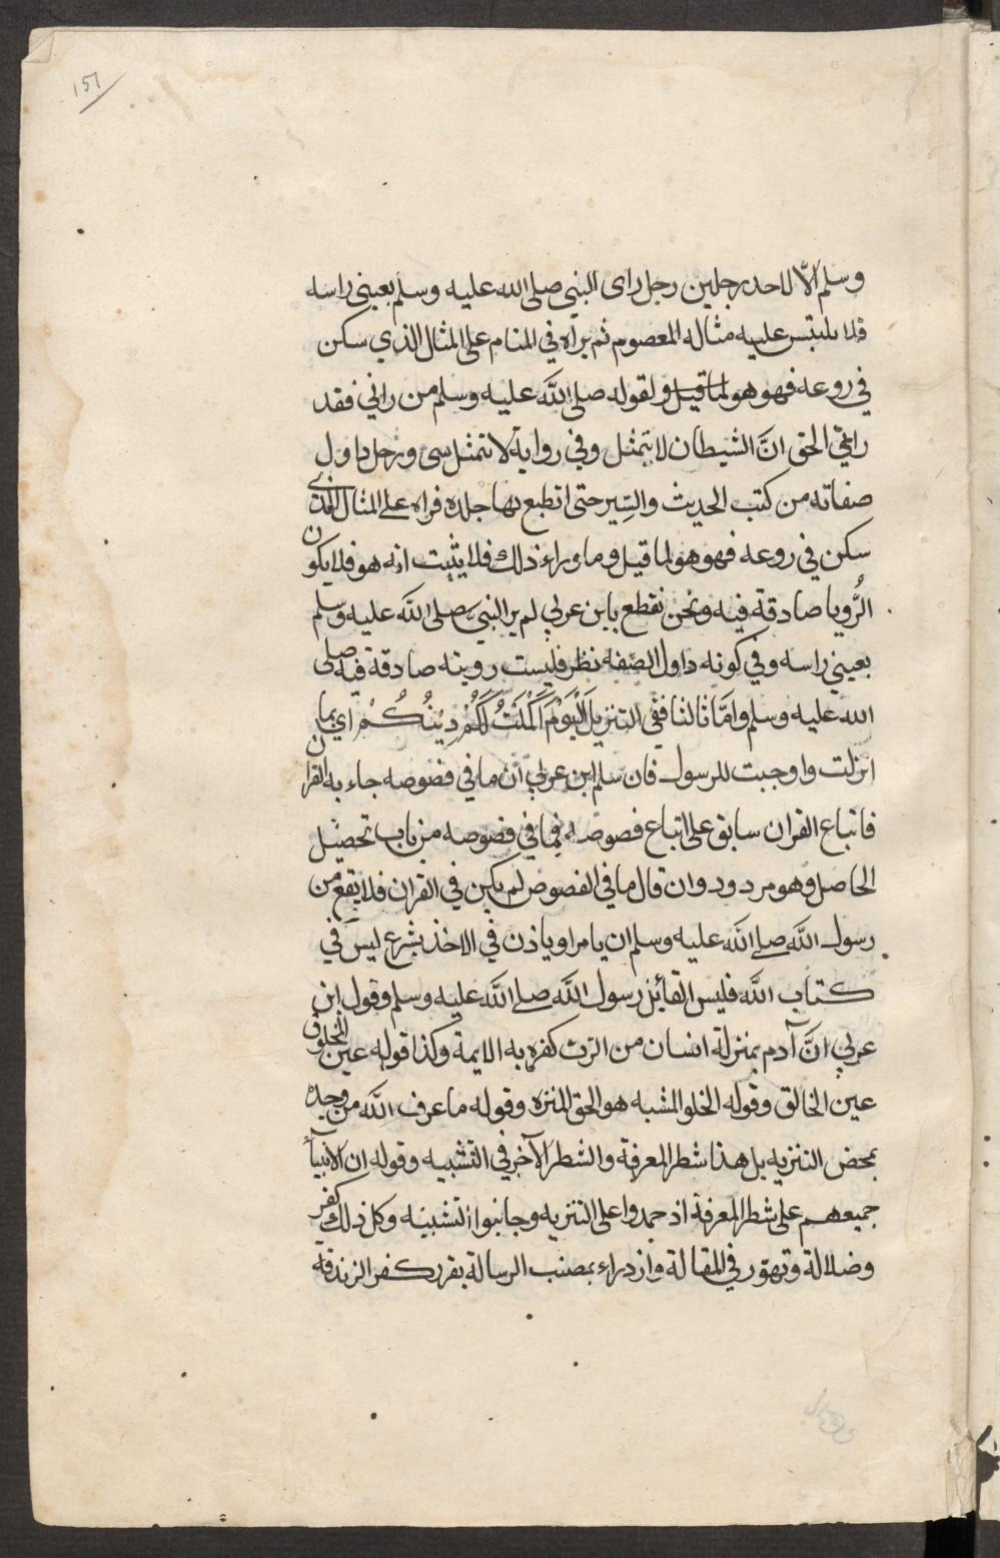 ١٥٦
وسلم الا لاحد رجلين رجل راى النبي صلى الله عليه وسلم بعيني راسه
فلا يلتبس عليه مثاله المعصوم ثم يراه في المنام على المثال الذي سكن
في روعه فهو هو لما قيل ولقوله صلى الله عليه وسلم من راني فقد
راى الحق انَّ الشيطان لا يتمثل وفي رواية لا تتمثل بي ورجل داول
صفاته من كتب الحديث والسِّير حتى انطبع بها جلده فراه على المثال الذي
سكن في روعه فهو هو لما قيل وما وراء ذلك فلا يثبت انه هو فلا يكون
الرُّويا صادقة فيه ونحن نقطع بابن عربي لم ير النبي صلى الله عليه وسلم
بعيني راسه وفي كونه داول الصفه نظر فليست رويته صادقة فيه صلى
الله عليه وسلم وامَّا ثالثا ففي التنزيل اَلْيَوْمَ اَكْمَلْتُ لَكُمْ دِيْنُكُمْ اي بما
انزلت واوجبت للرسول فان سلم ابن عربي ان ما في فصوصه جاء به القران
فاتباع القران سابق على اتباع فصوصه فما في فصوصه من باب تحصيل
الحاصل وهو مردود وان قال ما في الفصوص لم يكن في القران فلا يقع من
رسول الله صلى الله عليه وسلم ان يامر او ياذن في الاخذ بشرع ليس في
كتاب الله فليس القائل رسول الله صلى الله عليه وسلم وقول ابن
عربي انَّ آدم بمنزلة انسان من الرب كفره به الايمة وكذا قوله عين المخلوق
عين الخالق وقوله الخلو المشبه هو الحق المنزه وقوله ما عرف الله من وجده
بمحض التنزيه بل هذا شطر المعرفة والشطر الآخر في التشبيه وقوله ان الانبيآء
جميعهم على شطر المعرفة اذ حمدوا على التنزيه وجانبوا التشبيه وكل ذلك كفر
وضلالة وتهوّر في المقالة وازدراء بمصنب الرسالة بقرر كفر الزندقة